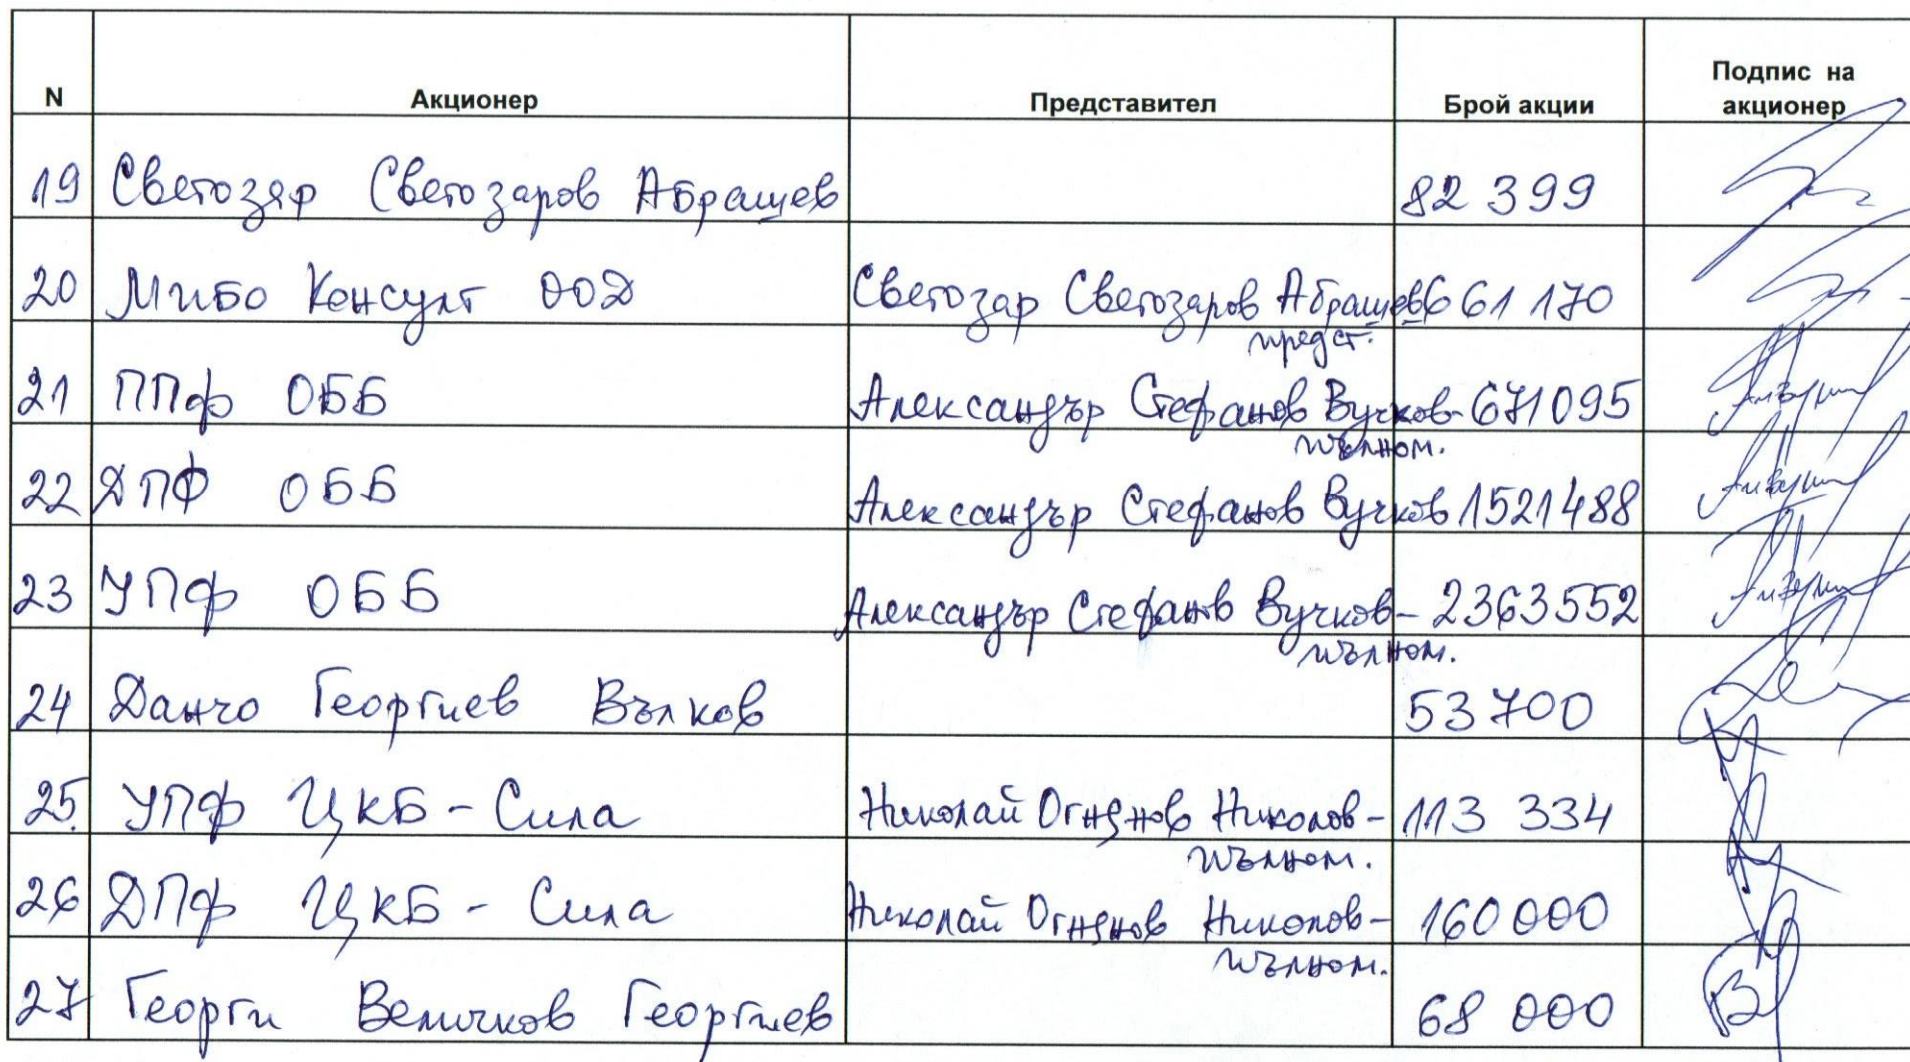 N Акционер Представител Брой акции Подпис на акционер
19 Светозар Светозаров Абрашев 82 399
20 Мибо Консулт ООД Светозар Светозаров Абрашев 661 170
предст.
21 ППФ ОББ Александър Стефанов Вучков - 671095
пълном.
22 ДПФ ОББ Александър Стефанов Вучков 1521488
23 УПФ ОББ Александър Стефанов Вучков - 2363552
пълном.
24 Данчо Георгиев Вълков 53700
25. УПФ ЦКБ - Сила Николай Огнянов Николов - 113 334
пълном.
26 ДПФ ЦКБ - Сила Николай Огнянов Николов - 160 000
пълном.
27 Георги Величков Георгиев 68 000